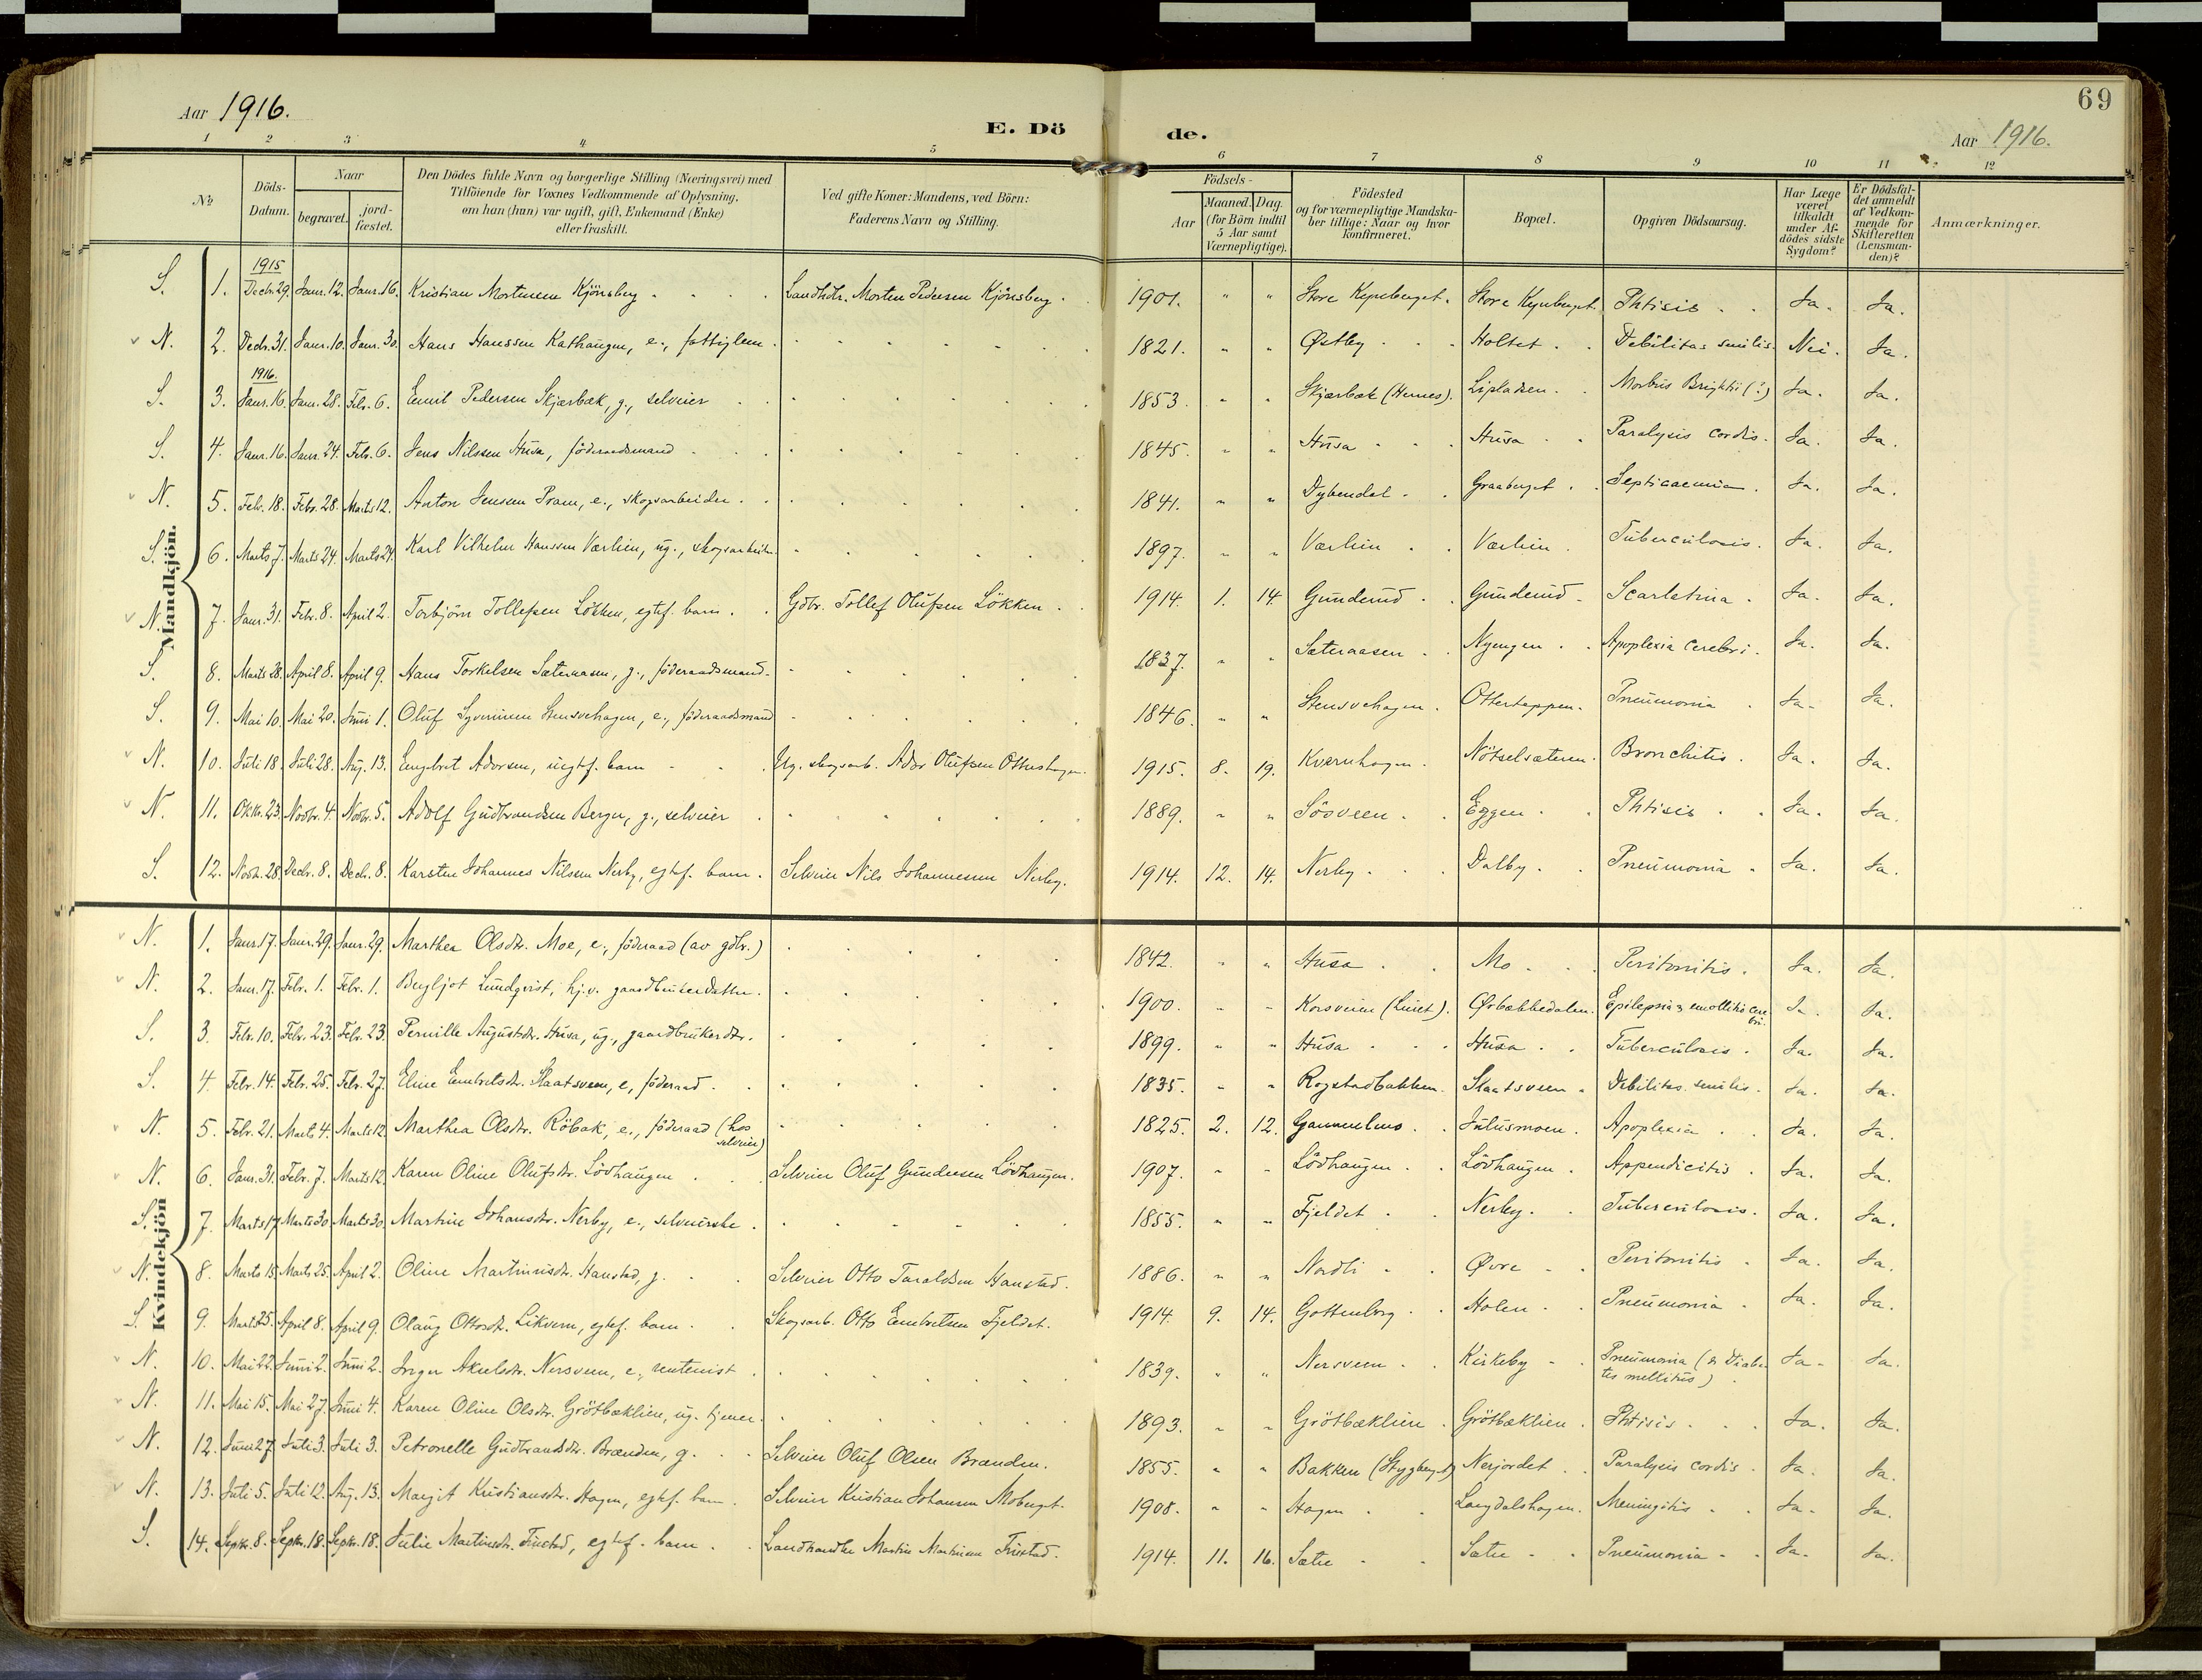 69
Aar 1916.
E. Dö de.
Aar 1916.
1 2 3 4 5 6 7 8 9 10 11 12
No
Döds-Datum.
Naar
begravet.
jord-fæstet.
Den Dödes fulde Navn og borgerlige Stilling (Næringsvei) med
Tilföiende for Voxnes Vedkommende af Oplysning,
om han (hun) var ugift, gift, Enkemand (Enke)
eller fraskilt.
Ved gifte Koner: Mandens, ved Börn:
Faderens Navn og Stilling.
Födsels-
Aar
Maaned. Dag.
(for Börn indtil
5 Aar samt
Værnepligtige).
Födested
og for værnepligtige Mandska-
ber tillige: Naar og hvor
konfirmeret.
Bopæl.
Opgiven Dödsaarsag.
Har Læge
været
tilkaldt
under Af-
dödes sidste
Sygdom?
Er Dödsfal-
det anmeldt
af Vedkom-
mende for
Skifteretten
(Lensman-
den)?
Anmærkninger.
Mandkjön.
1915
S. 1. Decbr. 29. Janr. 12. Janr. 16. Kristian Mortensen Kjönsberg Landhdr. Morten Pedersen Kjönsberg. 1901. " " Store Kynberget. Store Kynberget. Phtisis Ja. Ja.
N. 2. Decbr. 31. Janr. 10. Janr. 30. Hans Hanssen Kathaugen, e., fattiglem. 1821. " " Østby Holtet Debilitas senilis. Nei. Ja.
1916.
S. 3. Janr. 16. Janr. 28. Febr. 6. Emil Pedersen Skjærbæk, g., selveier 1853. " " Skjærbæk (Hernes). Lipladsen. Morbus Brightii (?) Ja. Ja.
S. 4. Janr. 16. Janr. 24. Febr. 6. Jens Nilssen Husa, föderaadsmand 1845. " " Husa Husa Paralysis cordis. Ja. Ja.
N. 5. Febr. 18. Febr. 28. Marts 12. Anton Jensen Pram, e., skogsarbeider. 1841. " " Dybendal Graaberget Septicaemia. Ja. Ja.
S. 6. Marts 7. Marts 24. Marts 24. Karl Vilhelm Hanssen Værlien, ug., skogsarbeider. 1897. " " Værlien Værlien. Tuberculosis. Ja. Ja.
N. 7. Janr. 31. Febr. 8. April 2. Torbjörn Tollefsen Lökken, egtef. barn. Gdbr. Tollef Olufsen Lökken. 1914. 1. 14. Gunderud Gunderud Scarlatina. Ja. Ja.
S. 8. Marts 28. April 8. April 9. Hans Torkelsen Sæteraasen, g., föderaadsmand. 1837. " " Sæteraasen Nyengen Apoplexia cerebri. Ja. Ja.
S. 9. Mai 10. Mai 20. Juni 1. Oluf Syverinsen Stensvehagen, e., föderaadsmand 1846. " " Stensvehagen. Ottertoppen. Pneumonia Ja. Ja.
N. 10. Juli 18. Juli 28. Aug. 13. Engbret Adorsen, uegtef. barn Ug. skogsarb. Ador Olufsen Ottershagen. 1915. 8. 19. Kværnhagen. Nötselsæteren. Bronchitis. Ja. Ja.
N. 11. Oktbr. 23. Novbr. 4. Novbr. 5. Adolf Gudbrandsen Berger, g., selveier 1889. " " Sösveen Eggen Phtisis Ja. Ja.
S. 12. Novbr. 28. Decbr. 8. Decbr. 8. Karsten Johannes Nilssen Nerby, egtef. barn. Selveier Nils Johannessen Nerby. 1914. 12. 14. Nerby Dalby. Pneumonia Ja. Ja.
Kvindekjön
N. 1. Janr. 17. Janr. 29. Janr. 29. Marthea Olsdtr. Moe, e., föderaad (av gdbr.) 1842. " " Husa Mo Peritonitis. Ja. Ja.
N. 2. Janr. 17. Febr. 1. Febr. 1. Bergljot Lundqvist, hj.v. gaardbrukerdatter. 1900. " " Korsveien (Linet). Ørbækkedalen. Epilepsia & emollitio cerebri. Ja. Ja.
S. 3. Febr. 10. Febr. 23. Febr. 23. Pernille Augustsdtr. Husa, ug., gaardbrukerdtr. 1899. " " Husa Husa Tuberculosis. Ja. Ja.
S. 4. Febr. 14. Febr. 25. Febr. 27. Eline Embretsdtr. Skaatsveen, e., föderaad. 1835. " " Rogstadbakken. Skaatsveen Debilitas senilis. Ja. Ja.
N. 5. Febr. 21. Marts 4. Marts 12. Marthea Olsdtr. Röbæk, e., föderaad (hos selveier) 1825. 2. 12. Gammelmo Juliusmoen. Apoplexia Ja. Ja.
N. 6. Janr. 31. Febr. 7. Marts 12. Karen Oline Olufsdtr. Lövhaugen Selveier Oluf Gundersen Lövhaugen. 1907. " " Lövhaugen Lövhaugen. Appendicitis. Ja. Ja.
S. 7. Marts 17. Marts 30. Marts 30. Martine Johansdtr. Nerby, e., selveierske. 1855. " " Fjeldet Nerby. Tuberculosis. Ja. Ja.
N. 8. Marts 15. Marts 25. April 2. Oline Martinusdtr. Hanstad, g. Selveier Otto Taraldsen Hanstad. 1886. " " Nordli Øvre Peritonitis Ja. Ja.
S. 9. Marts 25. April 8. April 9. Olaug Ottosdtr. Likvern, egtef. barn. Skogsarb. Otto Embretsen Fjeldet. 1914. 9. 14. Gottenborg Holen Pneumonia Ja. Ja.
N. 10. Mai 22. Juni 2. Juni 2. Inger Akselsdtr. Nersveen, e., rentenist 1839. " " Nersveen Kirkeby Pneumonia (& Diabetes mellitus) Ja. Ja.
N. 11. Mai 15. Mai 27. Juni 4. Karen Oline Olsdtr. Grötbæklien, ug. tjener. 1893. " " Grötbæklien Grötbæklien Phtisis Ja. Ja.
N. 12. Juni 27. Juli 3. Juli 3. Petronelle Gudbrandsdtr. Brænden, g. Selveier Oluf Olsen Brænden. 1855. " " Bakken (Stygberget) Nerjordet Paralysis cordis. Ja. Ja.
N. 13. Juli 5. Juli 12. Aug. 13. Margit Kristiansdtr. Hagen, egtef. barn. Selveier Kristian Johansen Moberget. 1908. " " Hagen Langdalshagen. Meningitis Ja. Ja.
S. 14. Septr. 8. Septr. 18. Septr. 18. Julie Martinsdtr. Finstad, egtef. barn. Landhandler Martin Martinsen Finstad. 1914. 11. 16. Sætre Sætre Pneumonia Ja. Ja.